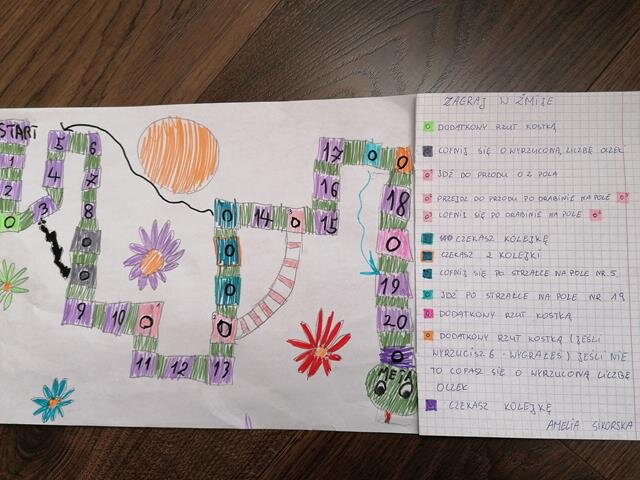 START
1
2
0
3
4
5
6
7
8
0
0
9
10
0
11
12
13
0
0
0
0
14
0
15
16
17
0
0
18
0
19
20
0
META
ZAGRAJ W ŻMIJE
0 DODATKOWY RZUT KOSTKĄ
COFNIJ SIĘ O WYRZUCONĄ LICZBĘ OCZEK
0 JDŹ DO PRZODU O 2 POLA
PRZEJDŹ DO PRZODU PO DRABINIE NA POLE 0
0 COFNIJ SIĘ PO DRABINIE NA POLE 0
CZEKASZ KOLEJKĘ
CZEKASZ 2 KOLEJKI
COFNIJ SIĘ PO STRZAŁCE NA POLE NR.5
0 JDŹ PO STRZAŁCE NA POLE NR 19
0 DODATKOWY RZUT KOSTKĄ
0 DODATKOWY RZUT KOSTKĄ (JEŚLI
WYRZUCISZ 6 - WYGRAŁEŚ) JEŚLI NIE
TO COFASZ SIĘ O WYRZUCONĄ LICZBĘ
OCZEK
CZEKASZ KOLEJKĘ
AMELIA SIKORSKA